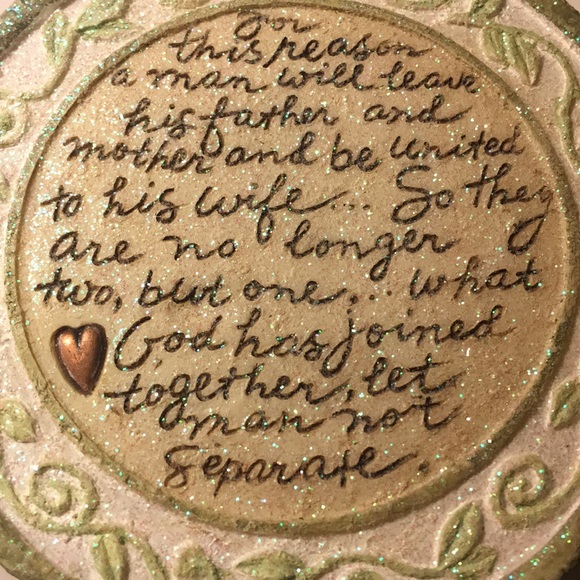 For
this reason
a man will leave
his father and
mother and be united
to his wife... So they
are no longer
two, but one... what
God has joined
together, let
man not
separate.